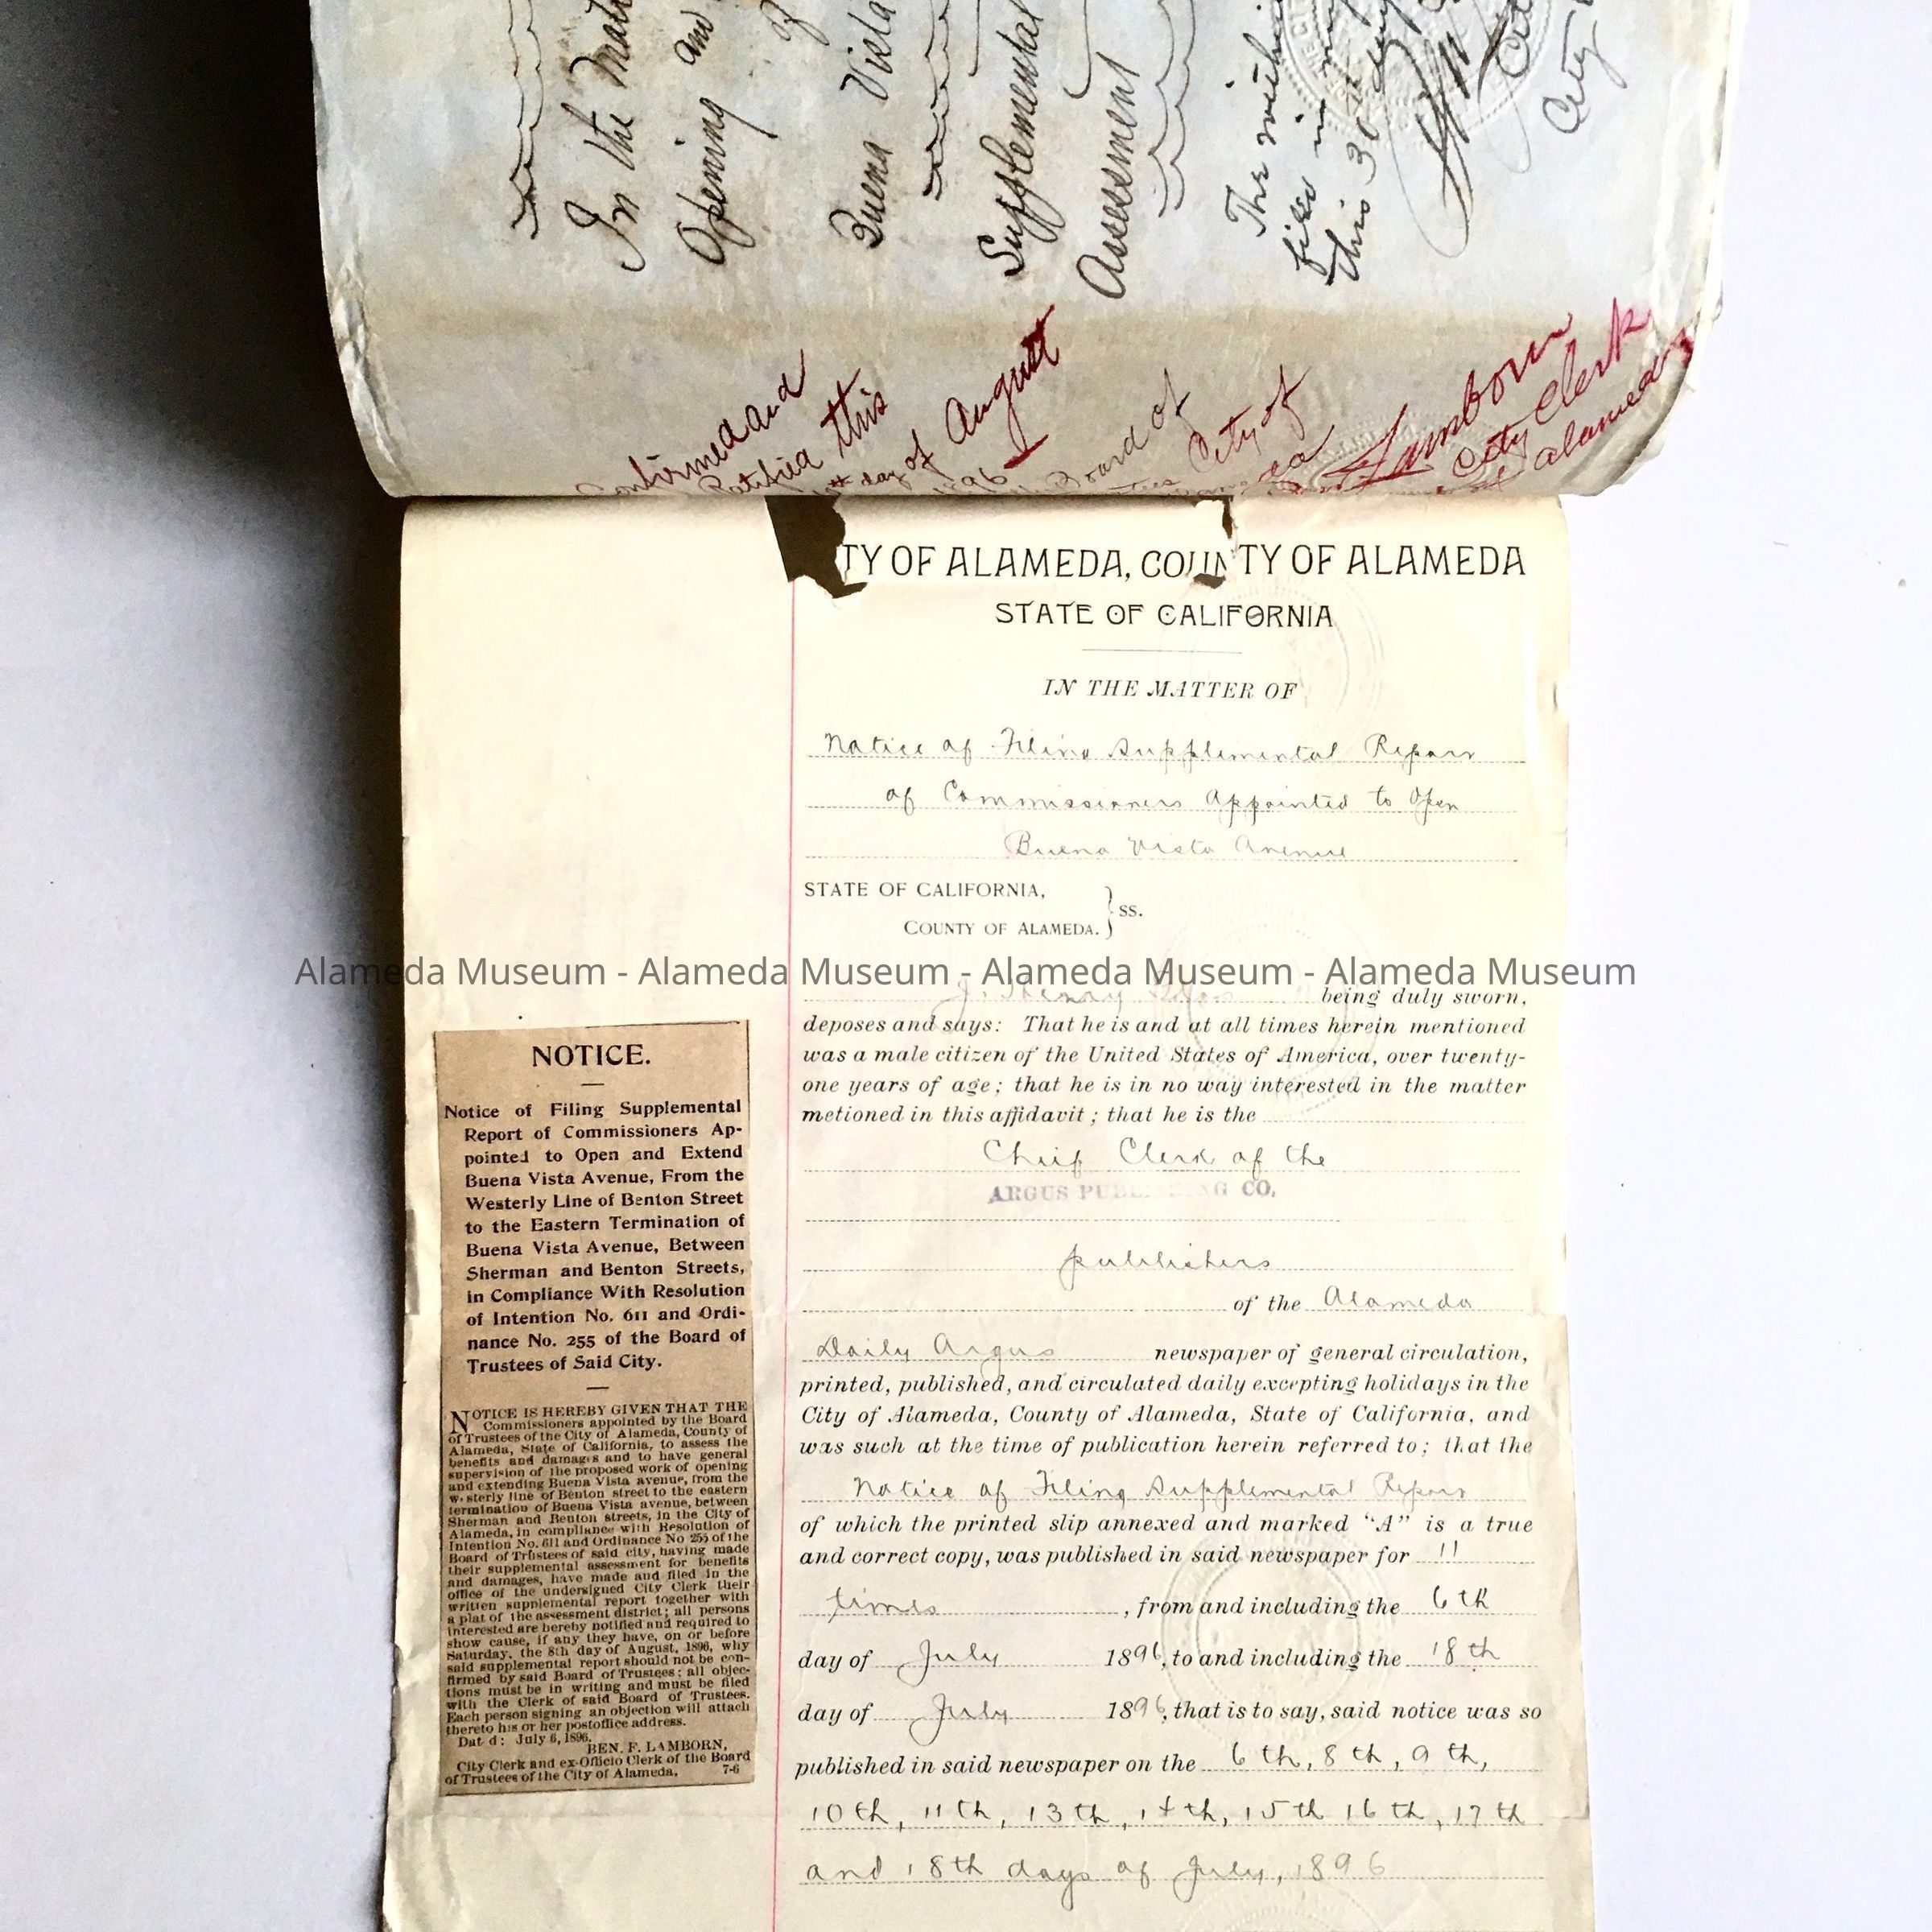 In the
Opening and
of
Buena Vista
Supplemental
Assessment
The
filed in my
this 30th day
City
Confirmed and
Ratified this
day of August
1896
Board of
City of
Lamborn
City Clerk
Alameda
TY OF ALAMEDA, COUNTY OF ALAMEDA
STATE OF CALIFORNIA
IN THE MATTER OF
Notice of Filing Supplemental Report
of Commissioners Appointed to Open
Buena Vista Avenue
STATE OF CALIFORNIA,
COUNTY OF ALAMEDA. } SS.
Alameda Museum - Alameda Museum - Alameda Museum - Alameda Museum
J. Henry being duly sworn,
deposes and says: That he is and at all times herein mentioned
was a male citizen of the United States of America, over twenty-
one years of age; that he is in no way interested in the matter
metioned in this affidavit; that he is the
Chief Clerk of the
ARGUS PUBLISHING CO.
publishers
of the Alameda
Daily Argus newspaper of general circulation,
printed, published, and circulated daily excepting holidays in the
City of Alameda, County of Alameda, State of California, and
was such at the time of publication herein referred to; that the
Notice of Filing Supplemental Report
of which the printed slip annexed and marked "A" is a true
and correct copy, was published in said newspaper for 11
times, from and including the 6th
day of July 1896, to and including the 18th
day of July 1896, that is to say, said notice was so
published in said newspaper on the 6th, 8th, 9th,
10th, 11th, 13th, 14th, 15th 16th, 17th
and 18th days of July, 1896
NOTICE.
Notice of Filing Supplemental
Report of Commissioners Ap-
pointed to Open and Extend
Buena Vista Avenue, From the
Westerly Line of Benton Street
to the Eastern Termination of
Buena Vista Avenue, Between
Sherman and Benton Streets,
in Compliance With Resolution
of Intention No. 611 and Ordi-
nance No. 255 of the Board of
Trustees of Said City.
NOTICE IS HEREBY GIVEN THAT THE
Commissioners appointed by the Board
of Trustees of the City of Alameda, County of
Alameda, State of California, to assess the
benefits and damages and to have general
supervision of the proposed work of opening
and extending Buena Vista avenue, from the
westerly line of Benton street to the eastern
termination of Buena Vista avenue, between
Sherman and Benton streets, in the City of
Alameda, in compliance with Resolution of
Intention No. 611 and Ordinance No 255 of the
Board of Trustees of said city, having made
their supplemental assessment for benefits
and damages, have made and filed in the
office of the undersigned City Clerk their
written supplemental report together with
a plat of the assessment district; all persons
interested are hereby notified and required to
show cause, if any they have, on or before
Saturday, the 8th day of August, 1896, why
said supplemental report should not be con-
firmed by said Board of Trustees; all objec-
tions must be in writing and must be filed
with the Clerk of said Board of Trustees.
Each person signing an objection will attach
thereto his or her postoffice address.
Dat d: July 6, 1896.
BEN. F. LAMBORN,
City Clerk and ex-Officio Clerk of the Board
of Trustees of the City of Alameda. 7-6